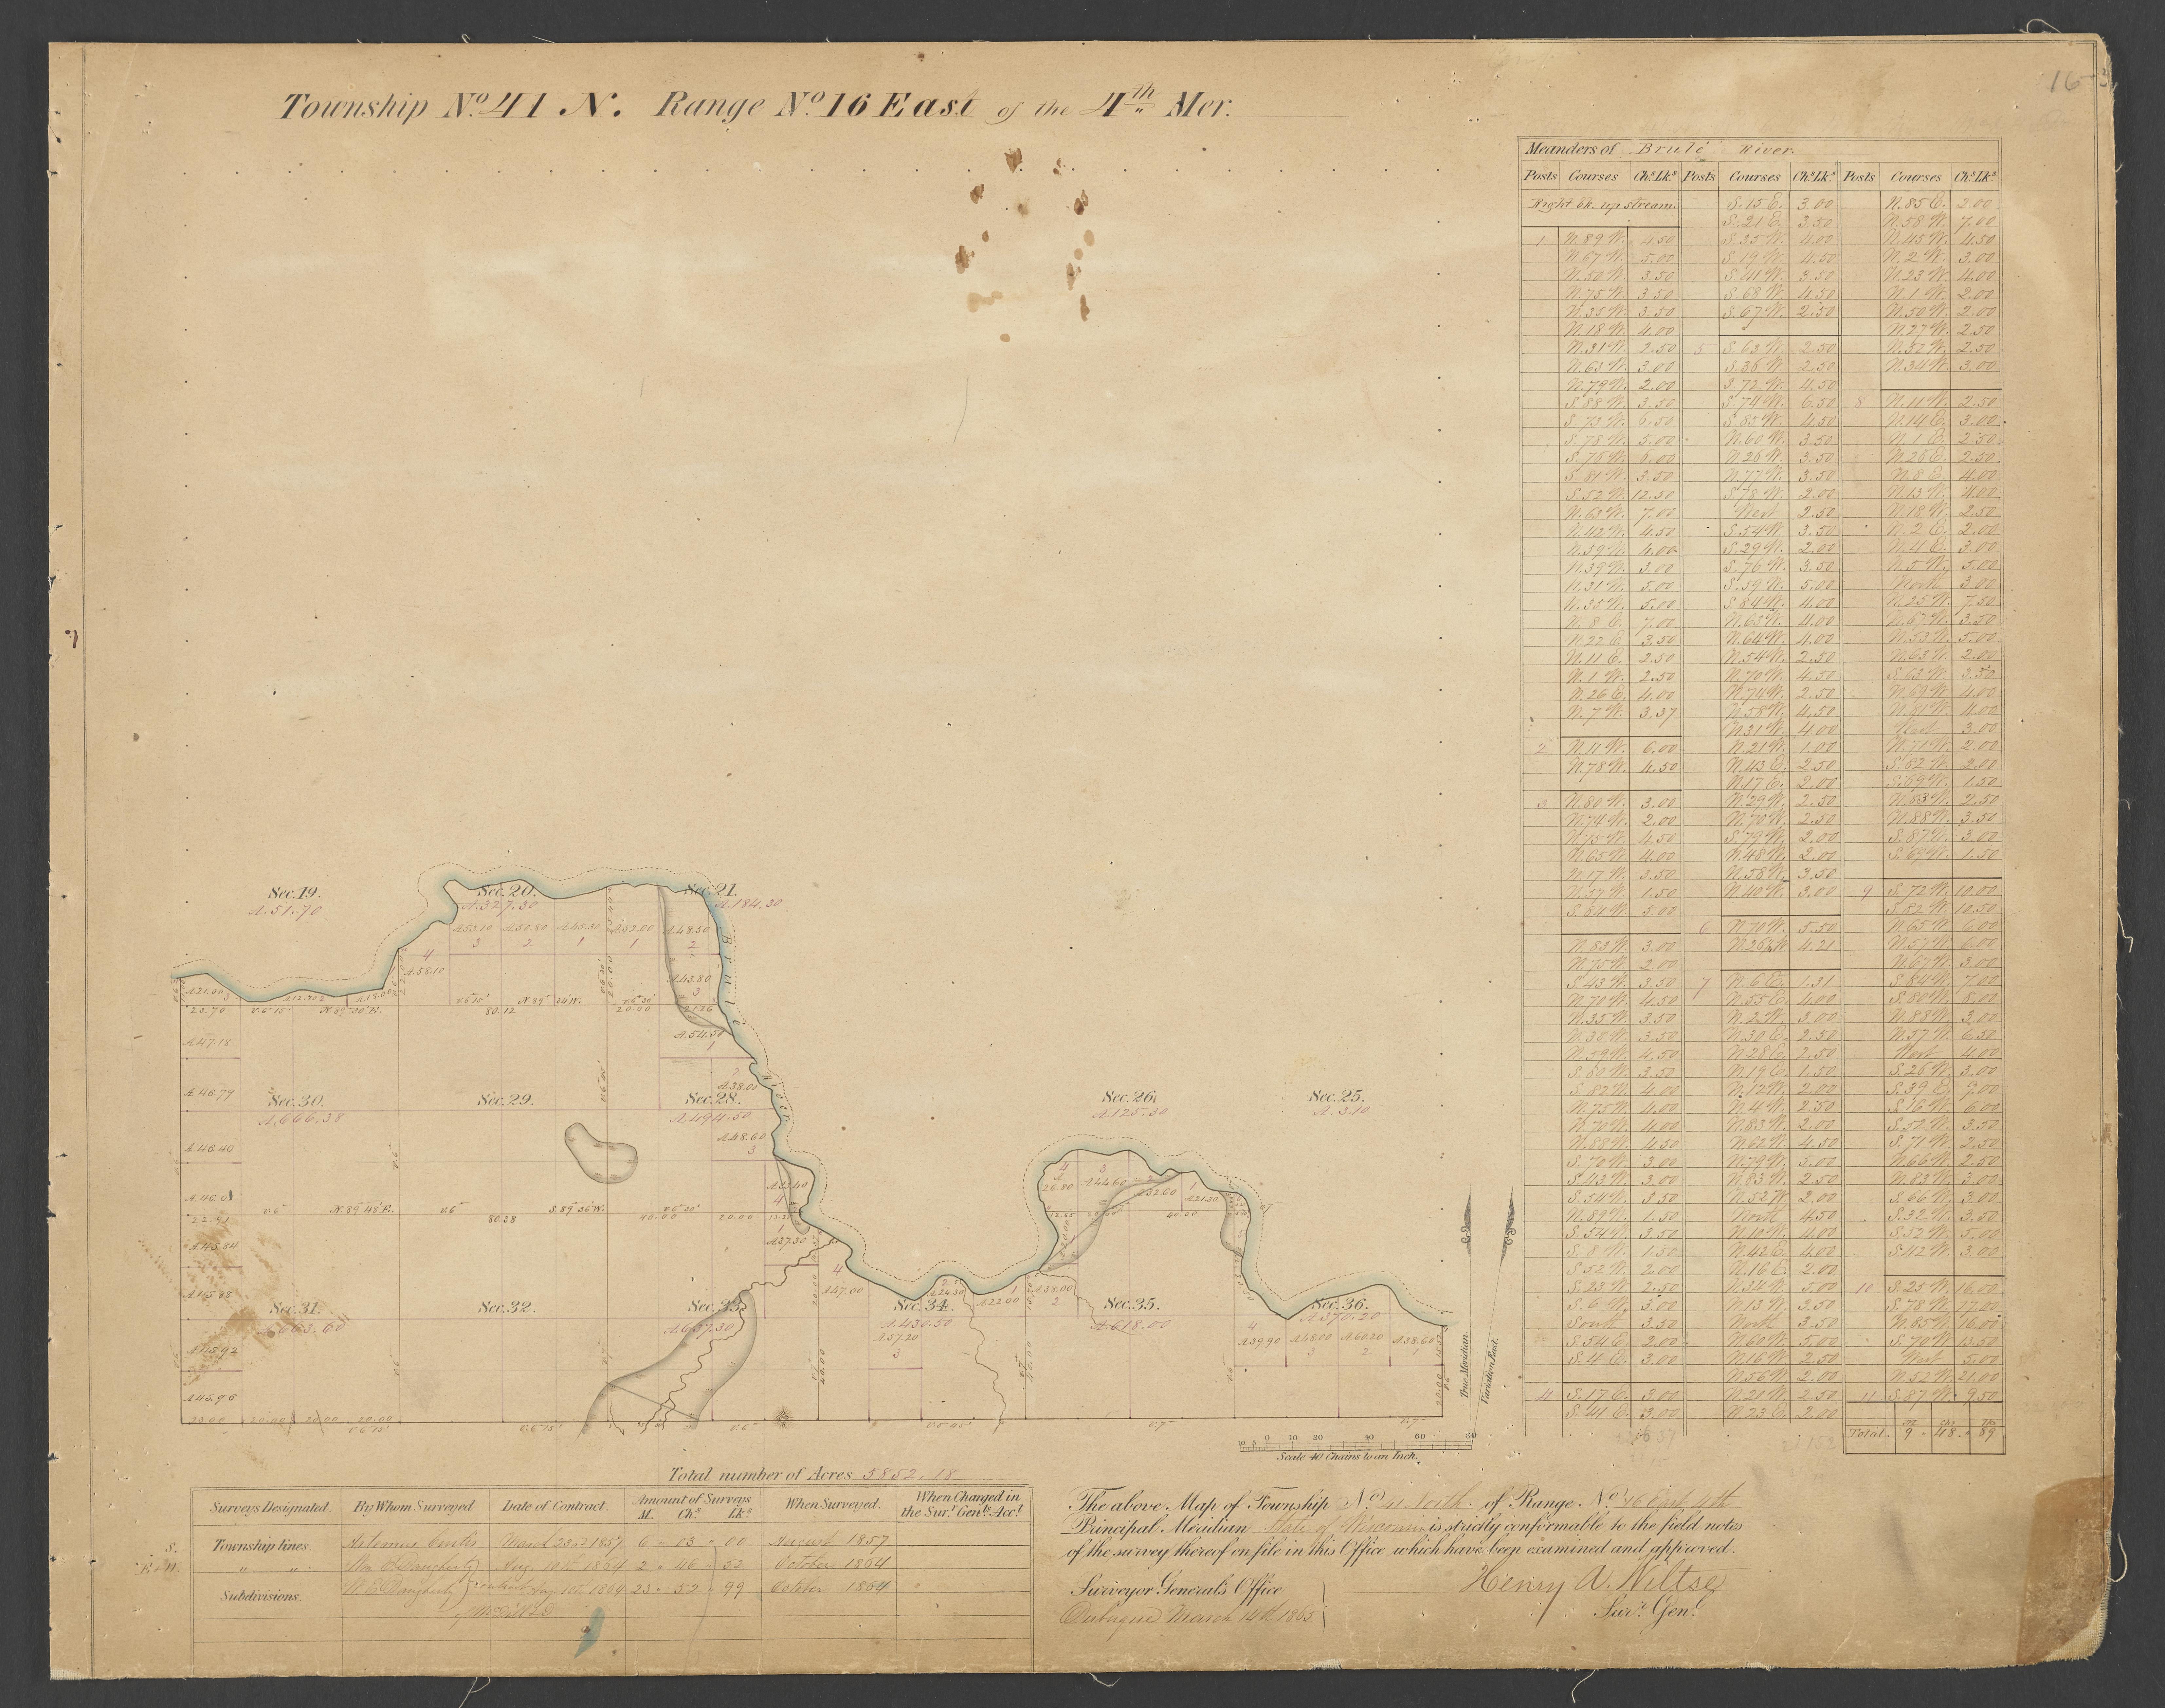 16
Township No. 41 N. Range No. 16 East of the 4th Mer.
Meanders of Brulé River.
Posts Courses Chs. Lks. Posts Courses Chs. Lks. Posts Courses Chs. Lks.
Right bk. up stream.
1 N. 89 W. 4.50
N. 67 W. 5.00
N. 50 W. 3.50
N. 75 W. 3.50
N. 35 W. 3.50
N. 18 W. 4.00
N. 31 W. 2.50
N. 63 W. 3.00
N. 79 W. 2.00
S. 88 W. 3.50
S. 73 W. 6.50
S. 78 W. 5.00
S. 76 W. 6.00
S. 81 W. 3.50
S. 52 W. 12.50
N. 63 W. 7.00
N. 42 W. 4.50
N. 59 W. 4.00
N. 39 W. 3.00
N. 31 W. 5.00
N. 35 W. 5.00
N. 8 E. 7.00
N. 22 E. 3.50
N. 11 E. 2.50
N. 1 W. 2.50
N. 26 E. 4.00
N. 7 W. 3.37
2 N. 11 W. 6.00
N. 78 W. 4.50
3 N. 80 W. 3.00
N. 74 W. 2.00
N. 75 W. 4.50
N. 65 W. 4.00
N. 17 W. 3.50
N. 57 W. 1.50
S. 64 W. 5.00
N. 83 W. 3.00
N. 75 W. 2.00
S. 43 W. 3.50
N. 70 W. 4.50
N. 35 W. 3.50
N. 38 W. 3.50
N. 59 W. 4.50
S. 80 W. 3.50
S. 82 W. 4.00
N. 75 W. 4.00
N. 70 W. 4.00
N. 88 W. 4.50
S. 70 W. 3.00
S. 43 W. 3.00
S. 54 W. 3.50
N. 89 W. 1.50
S. 54 W. 3.50
S. 8 W. 1.50
S. 52 W. 2.00
S. 23 W. 2.50
S. 6 W. 3.00
South 3.50
S. 54 E. 2.00
S. 4 E. 3.00
4 S. 17 E. 3.00
S. 41 E. 3.00
S. 15 E. 3.00
S. 21 E. 3.50
S. 35 W. 4.00
S. 19 W. 4.50
S. 41 W. 3.50
S. 68 W. 4.50
S. 67 W. 2.50
5 S. 63 W. 2.50
S. 36 W. 2.50
S. 72 W. 4.50
S. 74 W. 6.50
S. 85 W. 4.50
N. 60 W. 3.50
N. 26 W. 3.50
N. 77 W. 3.50
S. 78 W. 2.00
West 2.50
S. 54 W. 3.50
S. 29 W. 2.00
S. 76 W. 3.50
S. 39 W. 5.00
S. 84 W. 4.00
N. 65 W. 4.00
N. 64 W. 4.00
N. 54 W. 2.50
N. 70 W. 4.50
N. 74 W. 2.50
N. 58 W. 4.50
N. 31 W. 4.00
N. 21 W. 1.00
N. 43 E. 2.50
N. 17 E. 2.00
N. 29 W. 2.50
N. 70 W. 2.50
S. 79 W. 2.00
N. 48 W. 2.00
N. 58 W. 3.50
N. 40 W. 3.00
6 N. 70 W. 5.50
N. 26 W. 4.21
7 N. 6 E. 1.31
N. 55 E. 4.00
N. 2 W. 3.00
N. 30 E. 2.50
N. 28 E. 2.50
N. 19 E. 1.50
N. 12 W. 2.00
N. 4 W. 2.50
N. 83 W. 2.00
N. 62 W. 4.50
N. 79 W. 5.00
N. 83 W. 2.50
N. 52 W. 2.00
North 4.50
N. 10 W. 4.00
N. 42 E. 4.00
N. 16 E. 2.00
N. 34 W. 5.00
N. 13 W. 3.50
North 3.50
N. 60 W. 5.00
N. 16 W. 2.50
N. 56 W. 2.00
N. 21 W. 2.50
N. 23 E. 2.00
N. 85 E. 2.00
N. 58 W. 7.00
N. 45 W. 4.50
N. 2 W. 3.00
N. 23 W. 4.00
N. 1 W. 2.00
N. 50 W. 2.00
N. 27 W. 2.50
N. 52 W. 2.50
N. 34 W. 3.00
8 N. 11 W. 2.50
N. 14 E. 3.00
N. 1 E. 2.50
N. 26 E. 2.50
N. 8 E. 4.00
N. 13 W. 4.00
N. 18 W. 2.50
N. 2 E. 2.00
N. 4 E. 3.00
N. 5 W. 5.00
North 3.00
N. 25 W. 7.50
N. 67 W. 3.50
N. 53 W. 5.00
N. 63 W. 2.00
S. 63 W. 3.50
N. 69 W. 4.00
N. 81 W. 4.00
West 3.00
N. 71 W. 2.00
S. 82 W. 2.00
S. 69 W. 1.50
N. 83 W. 2.50
N. 88 W. 3.50
S. 87 W. 3.00
S. 69 W. 1.50
9 S. 72 W. 10.00
S. 82 W. 10.50
N. 65 W. 6.00
N. 57 W. 6.00
N. 67 W. 3.00
S. 84 W. 7.00
S. 80 W. 8.00
N. 88 W. 3.00
N. 57 W. 6.50
West 4.00
S. 26 W. 3.00
S. 39 E. 9.00
S. 16 W. 6.00
S. 52 W. 3.50
S. 71 W. 2.50
N. 66 W. 2.50
N. 83 W. 3.00
S. 66 W. 3.00
S. 32 W. 3.50
S. 52 W. 5.00
S. 42 W. 3.00
10 S. 25 W. 16.00
S. 78 W. 17.00
N. 85 W. 16.00
S. 70 W. 13.50
West 5.00
N. 52 W. 21.00
11 S. 87 W. 9.50
Total. 9 . 48 . 89
Sec. 19.
A. 51.70
Sec. 20.
A. 327.30
Sec. 21.
A. 184.30
A. 53.10 A. 50.80 A. 45.30 A. 52.00 A. 48.50
3 2 1 1 2
4
A. 58.10
A. 43.80
3
A. 21.00 A. 12.70 A. 18.00
23.70 N. 89° 50' E. 80.12 N. 89° 34' W. 20.00 21.26
A. 54.50
1
A. 47.18
2
A. 38.00
A. 46.79
Sec. 30.
A. 666.38
Sec. 29.
Sec. 28.
A. 494.50
Sec. 26.
A. 125.30
Sec. 25.
A. 3.10
A. 48.60
3
A. 46.40
A. 33.40
4
26.80 A. 44.60 A. 32.60 A. 21.30
A. 46.01
22.91 N. 89° 48' E. 80.38 S. 89° 36' W. 40.00 20.00
A. 45.84
A. 37.30
Brulé River
A. 45.88
A. 47.00 A. 24.30 A. 22.00 A. 38.00
Sec. 31.
A. 663.60
Sec. 32.
Sec. 33.
A. 657.30
Sec. 34.
A. 430.50
A. 57.20
3
Sec. 35.
A. 618.00
Sec. 36.
A. 370.20
A. 39.90 A. 48.00 A. 60.20 A. 38.60
4 3 2 1
A. 45.92
A. 45.96
23.00 20.00 20.00 20.00
True Meridian.
Variation East.
10 5 0 10 20 40 60 80
Scale 40 Chains to an Inch.
Total number of Acres 5852.18
Surveys Designated. By Whom Surveyed Date of Contract. Amount of Surveys M. Chs. Lks. When Surveyed. When Charged in the Sur. Genls. Acct.
S. Township lines Artemus Curtis March 23rd 1857 6 . 03 . 00 August 1857
E & W. " " Wm. E. Daugherty Aug. 10th 1864 2 . 46 . 52 October 1864
Subdivisions. W. E. Daugherty Contract Aug. 10th 1864 23 . 52 . 99 October 1864
The above Map of Township No. 41 North of Range No. 16 East, 4th
Principal Meridian State of Wisconsin is strictly conformable to the field notes
of the survey thereof on file in this Office which have been examined and approved.
Surveyor General's Office
Dubuque March 14th 1865
Henry A. Wiltse
Sur. Genl.